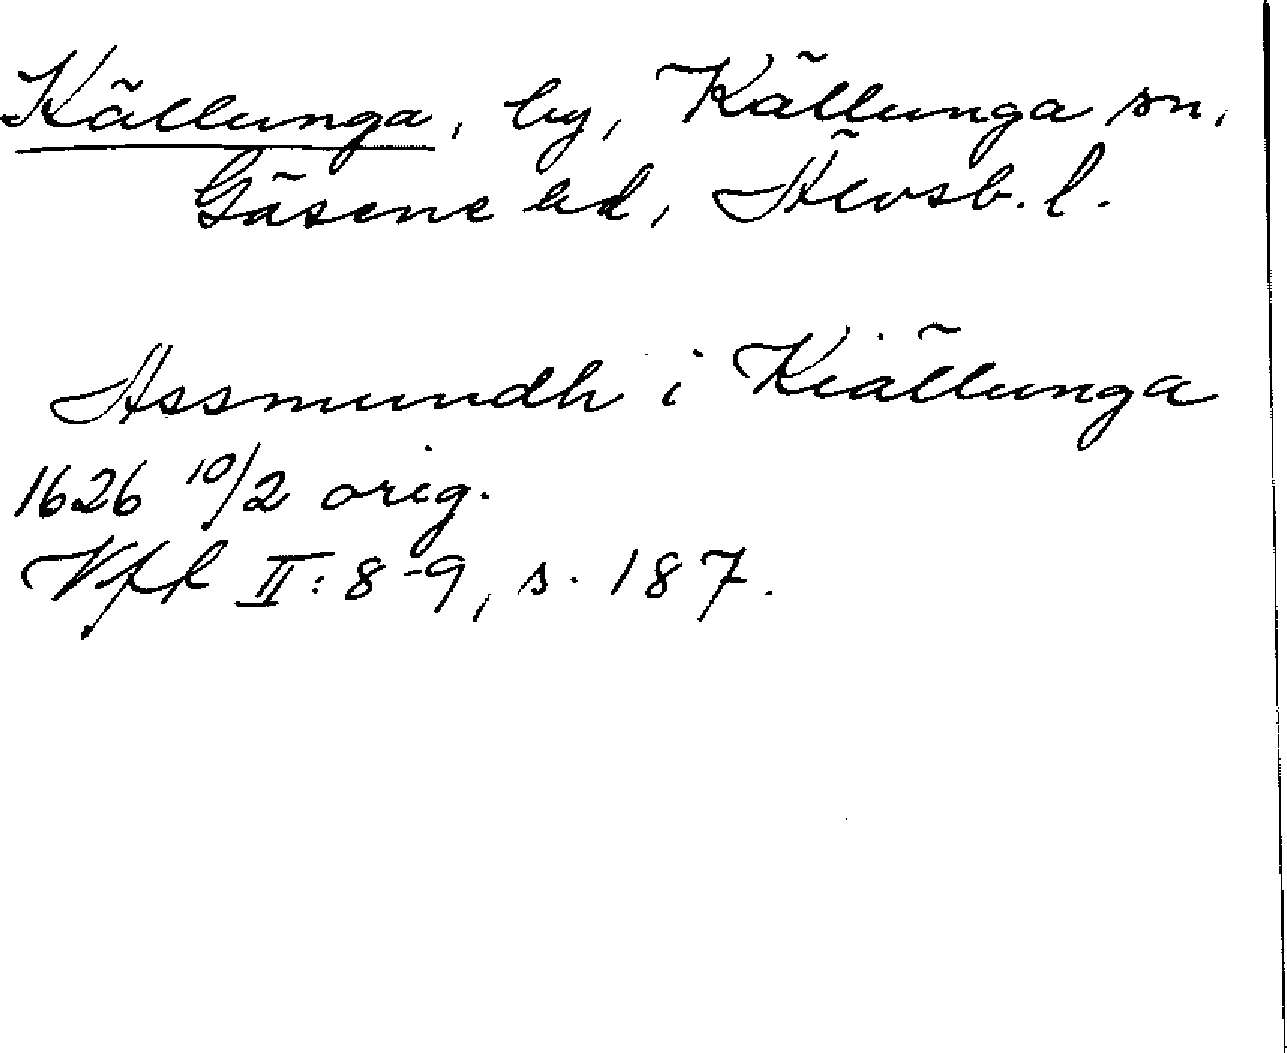 Källunga, by, Källunga sn,
Gäsene hd, Älvsb. l.
Assmundh i Kiällunga
1626 10/2 orig.
Vfl II: 8-9, s. 187.